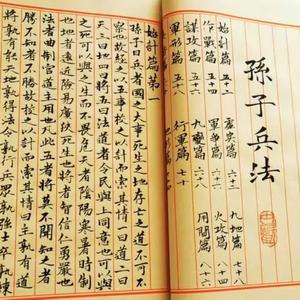 孫子兵法
始計篇
作戰篇
謀攻篇 五十四
軍形篇 五十六
虛實篇
軍爭篇
九變篇 六十八
行軍篇 七十
九地篇
火攻篇 八十四
用間篇 八十六
始計篇第一
孫子曰兵者國之大事死生之地存亡之道不可不
察也故經之以五事校之以計而索其情一曰道二曰
天三曰地四曰將五曰法道者令民與上同意也可與
之死可以與之生而不畏危天者陰陽寒暑時制
也地者遠近險易廣狹死生也將者智信仁勇嚴也
法者曲制官道主用也凡此五者將莫不聞知之者
勝不知者不勝故校之以計而索其情曰主孰有道
將孰有能天地孰得法令孰行兵眾孰強士卒孰練